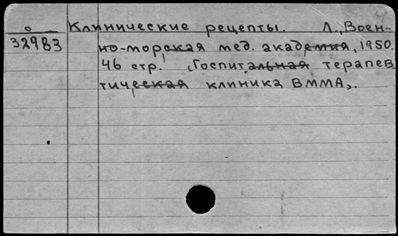 о Клинические рецепты. Л., Воен-
32983 но-морская мед. академия, 1950.
46 стр. (Госпитальная терапев
тическая клиника ВММА).